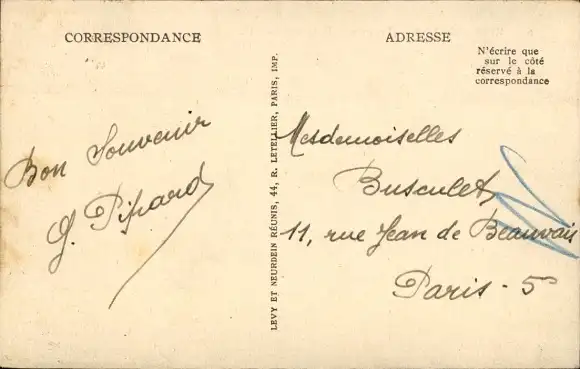 CORRESPONDANCE
Bon Souvenir
G. Pifard
LEVY ET NEURDEIN RÉUNIS, 44, R. LETELLIER, PARIS, IMP.
ADRESSE
N'écrire que
sur le côté
réservé à la
correspondance
Mesdemoiselles
11, rue Jean de Beauvais
Paris - 5